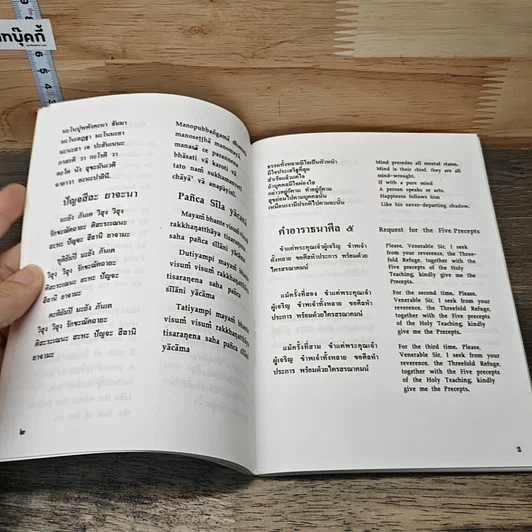 ทบุ๊คกี้
มะโนปุพพังคะมา ธัมมา
มะโนเสฏฐา มะโนมะยา
มะนะสา เจ ปะสันเนนะ
ภาสะติ วา กะโรติ วา
ตะโต นัง สุขะมันเวติ
ฉายาวา อะนะปายินี.
ปัญจสีละ ยาจะนา
มะยัง ภันเต วิสุง วิสุง
รักขะณัตถายะ
ติสะระเณนะ สะหะ ปัญจะ
สีลานิ ยาจามะ
ทุติยัมปิ มะยัง ภันเต
วิสุง วิสุง รักขะณัตถายะ
ติสะระเณนะ สะหะ ปัญจะ
สีลานิ ยาจามะ
ตะติยัมปิ มะยัง ภันเต
วิสุง วิสุง รักขะณัตถายะ
ติสะระเณนะ สะหะ ปัญจะ สีลานิ
ยาจามะ
๒
Manopubbaṅgamā dhammā
manoseṭṭhā manomayā
manasā ce pasannena
bhāsati vā karoti vā
tato naṁ sukhamanveti
chāyā'va anapāyinī.
Pañca Sīla yācanā
Mayaṁ bhante visuṁ visuṁ
rakkhaṇatthāya tisaraṇena
saha pañca sīlāni yācāma
Dutiyampi mayaṁ bhante
visuṁ visuṁ rakkhaṇatthāya
tisaraṇena saha pañca
sīlāni yācāma
Tatiyampi mayaṁ bhante
visuṁ visuṁ rakkhaṇatthāya
tisaraṇena saha pañca sīlāni
yācāma
ธรรมทั้งหลายมีใจเป็นหัวหน้า
มีใจประเสริฐที่สุด
สำเร็จแล้วแต่ใจ
ถ้าบุคคลมีใจผ่องใส
กล่าวอยู่ก็ตาม ทำอยู่ก็ตาม
สุขย่อมไปตามบุคคลนั้น
เหมือนเงาที่ไปตามตัวฉะนั้น
คำอาราธนาศีล ๕
ข้าแต่พระคุณเจ้าผู้เจริญ ข้าพเจ้า
ทั้งหลาย ขอศีลห้าประการ พร้อมด้วย
ไตรสรณาคมน์
แม้ครั้งที่สอง ข้าแต่พระคุณเจ้า
ผู้เจริญ ข้าพเจ้าทั้งหลาย ขอศีลห้า
ประการ พร้อมด้วยไตรสรณาคมน์
แม้ครั้งที่สาม ข้าแต่พระคุณเจ้า
ผู้เจริญ ข้าพเจ้าทั้งหลาย ขอศีลห้า
ประการ พร้อมด้วยไตรสรณาคมน์
Mind precedes all mental states.
Mind is their chief, they are all
mind-wrought.
If with a pure mind
A person speaks or acts,
Happiness follows him
Like his never-departing shadow.
Request for the Five Precepts
Please, Venerable Sir, I seek
from your reverence, the Three-
fold Refuge, together with the
Five precepts of the Holy
Teaching.
For the second time, Please,
Venerable Sir, I seek from your
reverence, the Threefold Refuge,
together with the Five precepts
of the Holy Teaching, kindly
give me the Precepts.
For the third time, Please,
Venerable Sir, I seek from your
reverence, the Threefold Refuge,
together with the Five precepts
of the Holy Teaching, kindly
give me the Precepts.
2